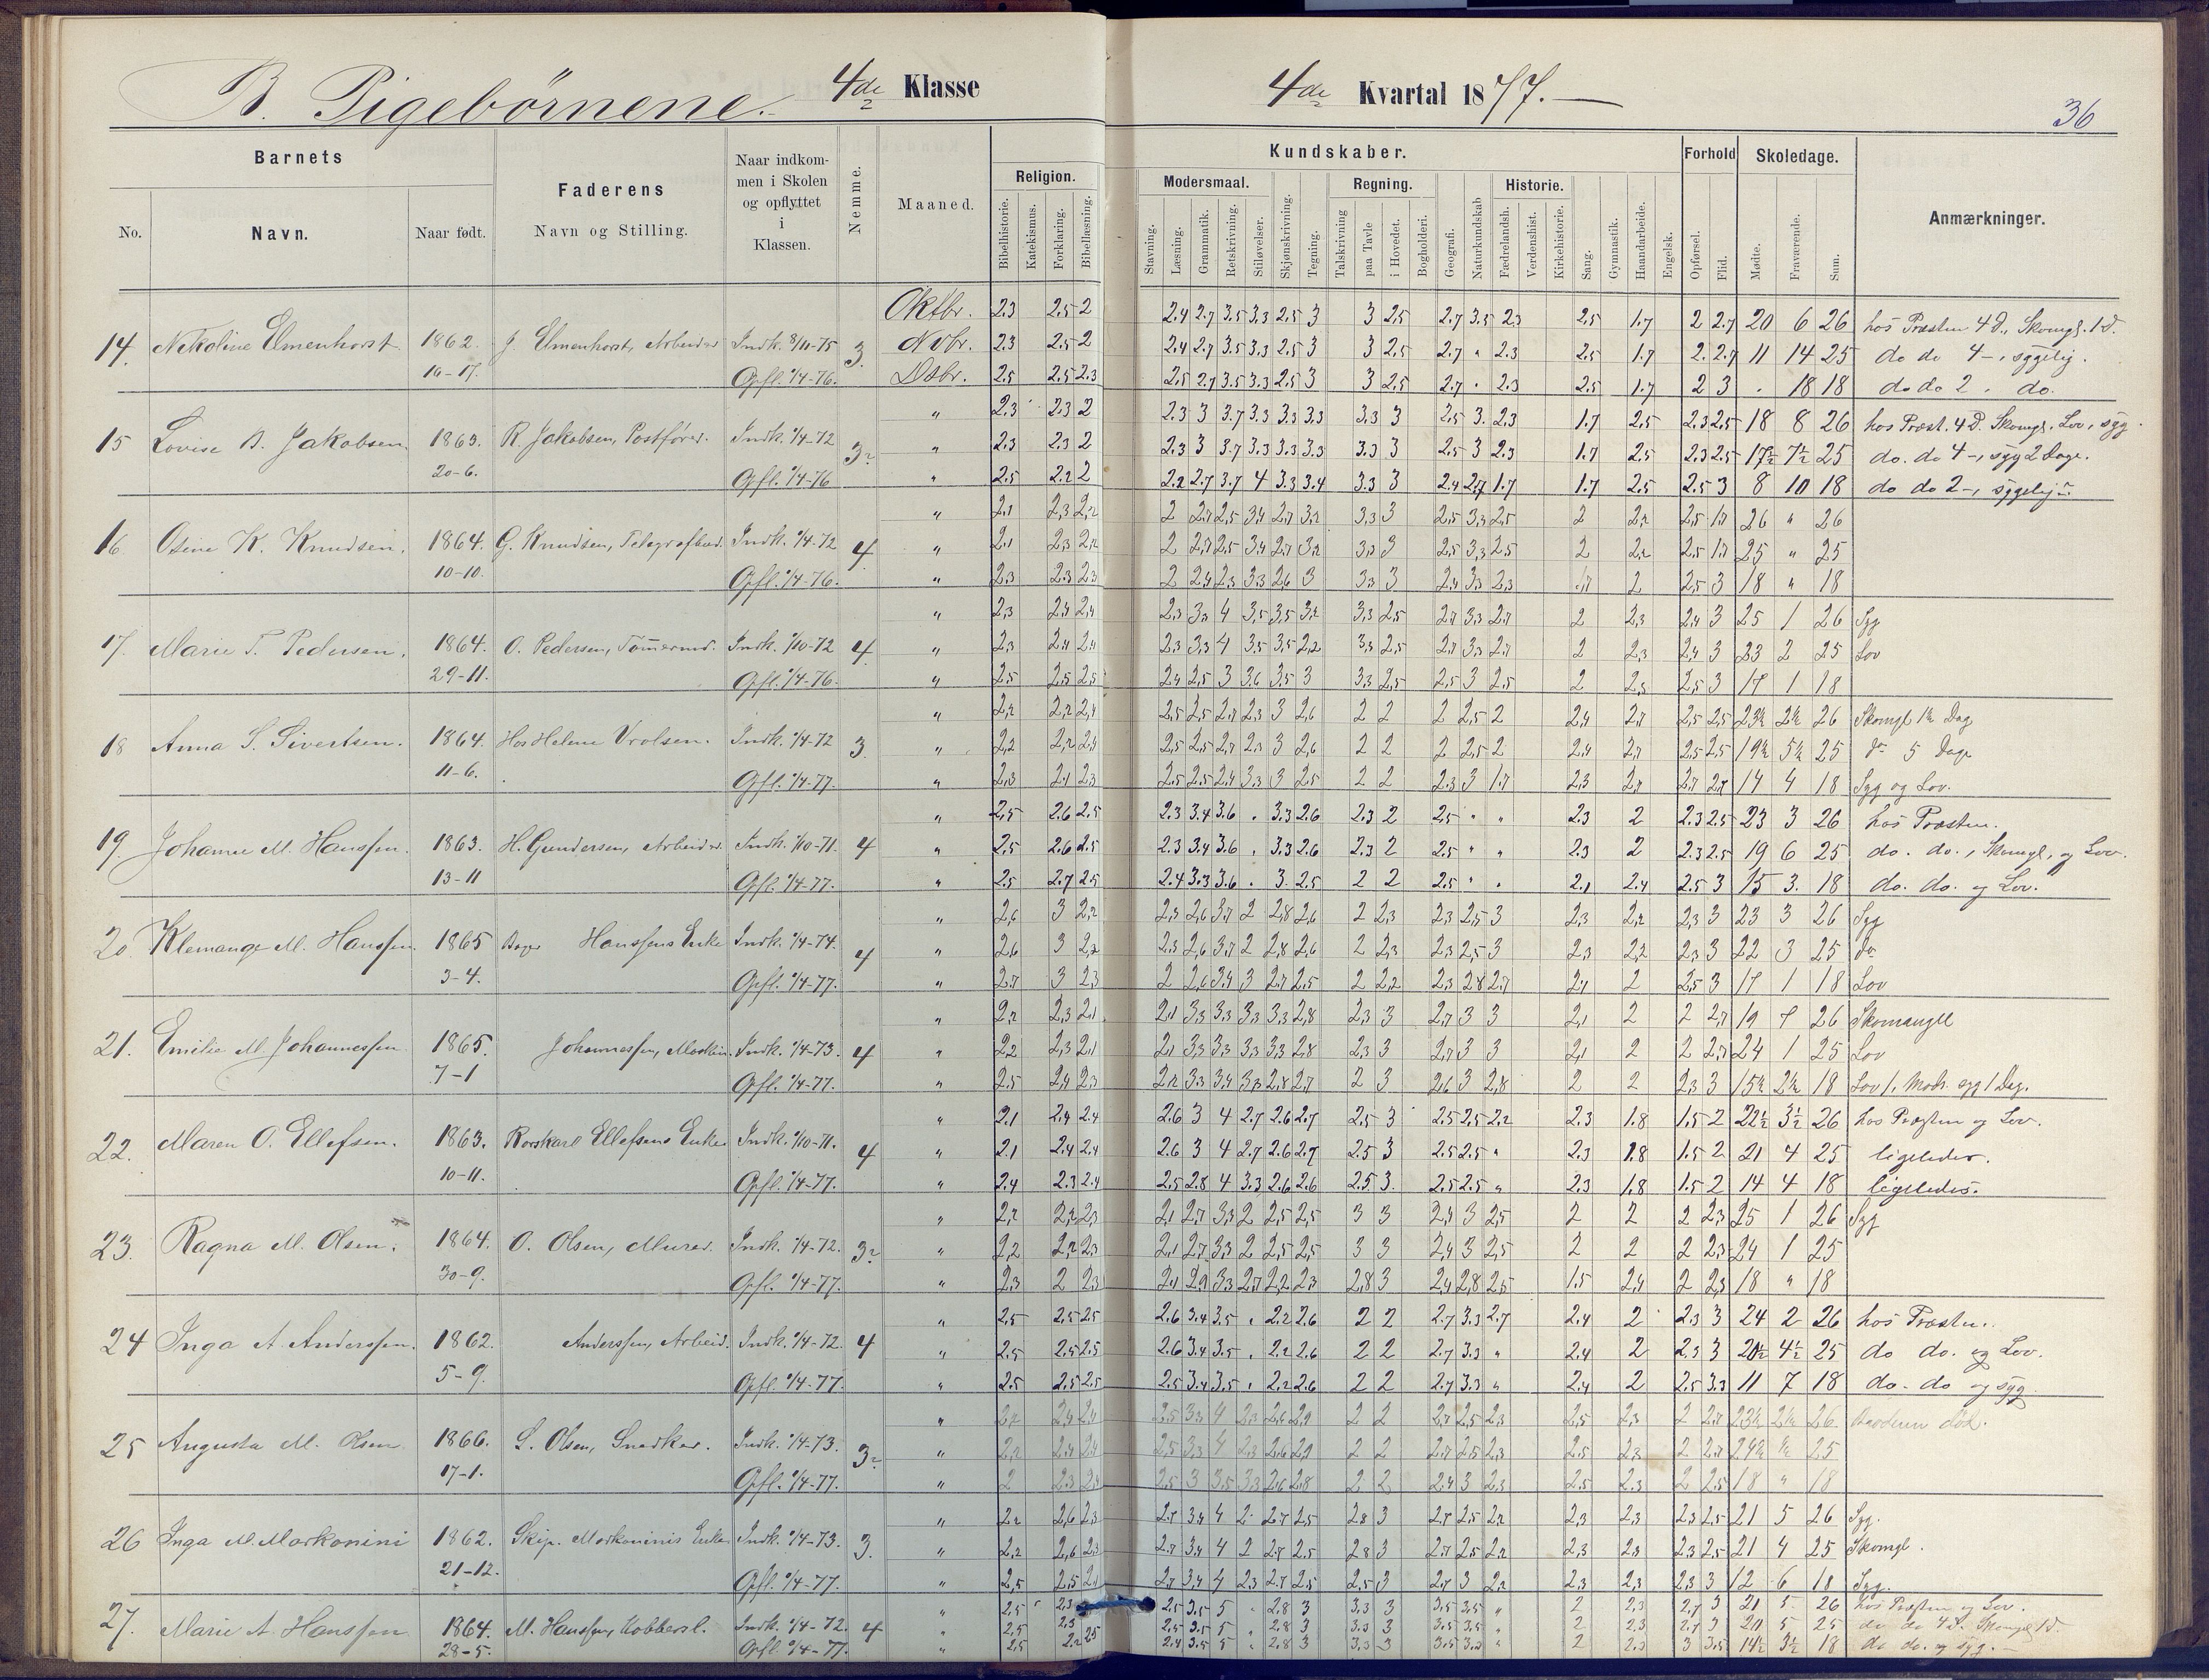 B. Pigebörnene. 4de Klasse
4de Kvartal 1877.
36
Barnets
Faderens
Naar indkommen i Skolen og opflyttet i Klassen.
Nemme.
Maaned.
Religion.
Kundskaber.
Forhold
Skoledage.
Anmærkninger.
No.
Navn.
Naar født.
Navn og Stilling.
Bibelhistorie.
Katekismus.
Forklaring.
Bibellæsning.
Modersmaal.
Regning.
Historie.
Stavning.
Læsning.
Grammatik.
Retskrivning.
Stiløvelser.
Skjønskrivning.
Tegning.
Talskrivning
paa Tavle
i Hovedet.
Bogholderi.
Geografi.
Naturkundskab
Fædrelandsh.
Verdenshist.
Kirkehistorie.
Sang.
Gymnastik.
Haandarbeide.
Engelsk.
Opførsel.
Flid.
Mødte.
Fraværende.
Sum.
Oktbr. 2.3 2.5 2 2.4 2.7 3.5 3.3 2.5 3 3 2.5 2.7 3.5 2.3 2.5 1.7 2 2.7 20 6 26 hos Præsten 4 d., Skomgl. 1 d.
14. Nikoline Elmenhorst 1862. J. Elmenhorst, Arbeider Indk. 8/11-75 3. Novbr. 2.3 2.5 2 2.4 2.7 3.5 3.3 2.5 3 3 2.5 2.7 " 2.3 2.5 1.7 2. 2.7 11 14 25 do do 4 -, sygelig.
Opfl. 1/4-76. Dsbr. 2.5 2.5 2.3 2.5 2.7 3.5 3.3 2.5 3 3 2.5 2.7 " 2.3 2.5 1.7 2 3 . 18 18 do do 2 . do.
" 2.3 2.3 2 2.3 3 3.7 3.3 3.3 3.3 3.3 3 2.5 3. 2.3 1.7 2.5 2.3 2.5 18 8 26 hos Præst. 4 d. Skomgl. Lov, syg.
15 Lovise B. Jakobsen. 1863. R. Jakobsen, Postfører. Indk. 1/4-72 " 2.3 2.3 2 2.3 3 3.7 3.3 3.3 3.3 3.3 3 2.5 3 2.3 1.7 2.5 2.3 2.5 17½ 7½ 25 do. do 4 -, syg 2 Dage.
20-6. Opfl. 1/4-76 " 2.5 2.2 2 2.2 2.7 3.7 4 3.3 3.4 3.3 3 2.4 2.7 1.7 1.7 2.5 2.5 3 8 10 18 do do 2 -, sygelig
" 2,1 2,3 2,2 2 2,7 2,5 3,4 2,7 3,2 3,3 3 2,5 3,3 2,5 2 2,2 2,5 1,7 26 " 26
16 Osine K. Knudsen. 1864. G. Knudsen, Telegrafbud. Indk. 1/4-72 4 " 2,1 2,3 2,2 2 2,7 2,5 3,4 2,7 3,2 3,3 3 2,5 3,3 2,5 2 2,2 2,5 1,7 25 " 25
10-10. Opfl. 1/4-76. " 2,3 2,3 2,3 2 2,4 2,3 3,3 2,6 3 3,3 3 2,4 3,3 2,3 1,7 2 2,5 3 18 " 18
" 2,3 2,4 2,4 2,3 3,3 4 3,5 3,5 3,2 3,3 2,5 2,7 3,3 2,7 2 2,3 2,4 3 25 1 26 Syg
17. Marie T. Pedersen. 1864. O. Pedersen, Tømermd. Indk. 1/10-72 4. " 2,3 2,4 2,4 2,3 3,3 4 3,5 3,5 2,2 3,3 2,5 2,7 3,3 2,7 2 2,3 2,4 3 23 2 25 Lov
29-11. Opfl. 1/4-76. " 2,5 2,5 2,5 2,4 2,5 3 3,6 3,5 3 3,3 2,5 2,5 3 2,5 2 2,5 2,5 3 17 1 18
" 2,2 2,2 2,4 2,5 2,5 2,7 2,3 3 2,6 2 2 2 2,5 2 2,4 2,7 2,5 2,5 23½ 2½ 26 Skomgl 1½ Dag
18 Anna S. Sivertsen. 1864. Hos Helene Vrolsen. Indk. 1/4-72 3. " 2,2 2,2 2,4 2,5 2,5 2,7 2,3 3 2,6 2 2 2 2,5 2 2,4 2,7 2,5 2,5 19½ 5½ 25 do 5 Dage
11-6. Opfl. 1/4-77. " 2,3 2,1 2,3 2,5 2,5 2,4 3,3 3 2,5 2 2 2,3 3 1,7 2,3 2,7 2,7 2,7 14 4 18 Syg og Lov.
" 2,5 2.6 2.5 2.3 3.4 3.6 . 3.3 2.6 2.3 2 2.5 " " 2.3 2 2.3 2.5 23 3 26 hos Præsten.
19. Johanne M. Hanssen. 1863. H. Gundersen, Arbeider. Indk. 1/10-71. 4 " 2,5 2.6 2.5 2.3 3.4 3.6 . 3.3 2.6 2.3 2 2.5 " " 2.3 2 2.3 2.5 19 6 25 do. do., Skomgl, og Lov.
13-11 Opfl. 1/4-77. " 2.5 2.7 2.5 2.4 3.3 3.6 . 3. 2.5 2 2 2.5 " . 2.1 2.4 2.5 3 15 3. 18 do. do. og Lov.
" 2,6 3 2,2 2,3 2,6 3,7 2 2,8 2,6 2 2,3 2,3 2,5 3 2,3 2,2 2,3 3 23 3 26 Syg
20. Klemange M. Hanssen. 1865 Hanssens Enke Indk. 1/4-74. 4 " 2,6 3 2,2 2,3 2,6 3,7 2 2,8 2,6 2 2,3 2,3 2,5 3 2,3 2,2 2,3 3 22 3 25 do
3-4. Opfl. 1/4-77. " 2,7 3 2,3 2 2,6 3,4 3 2,7 2,5 2 2,2 2,3 2,8 2,7 2,1 2 2,5 3 17 1 18 Lov
" 2,2 2,3 2,1 2,1 3,3 3,3 3,3 3,3 2,8 2,3 3 2,7 3 3 2,1 2 2 2,7 19 7 26 Skomangel
21. Emilie M. Johannessen 1865. Johannessen, Indk. 1/4-73. 4 " 2,2 2,3 2,1 2,1 3,3 3,3 3,3 3,3 2,8 2,3 3 2,7 3 3 2,1 2 2 2,7 24 1 25 Lov
7-1 Opfl. 1/4-77. " 2,5 2,4 2,3 2,2 3,3 3,4 3,3 2,8 2,7 2 3 2,6 3 2,8 2 2 2,3 3 15½ 2½ 18 Lov 1, Modr. syg 1 Dag.
" 2.1 2.4 2.4 2.6 3 4 2.7 2.6 2.7 2.5 3 2.5 2.5 2.2 2.3 1.8 1.5 2 22½ 3½ 26 hos Præsten og Lov.
22. Maren O. Ellefsen. 1863. Ellefsens Enke Indk. 1/10-71. 4 " 2.1 2.4 2.4 2.6 3 4 2.7 2.6 2.7 2.5 3 2.5 2.5 " 2.3 1.8 1.5 2 21 4 25 ligeledes.
10-11. Opfl. 1/4-77. " 2.4 2.3 2.4 2.5 2.8 4 3.3 2.6 2.6 2.5 3. 2.5 2.5 " 2.3 1.8 1.5 2 14 4 18 ligeledes.
" 2,2 2,2 2,3 2,1 2,7 3,3 2 2,5 2,5 3 3 2,4 3 2,5 2 2 2 2,3 25 1 26 Syg
23. Ragna M. Olsen. 1864. O. Olsen, Murer. Indk. 1/4-72. " 2,2 2,2 2,3 2,1 2,7 3,3 2 2,5 2,5 3 3 2,4 3 2,5 2 2 2 2,3 24 1 25
30-9. Opfl. 1/4-77. " 2,3 2 2,3 2,1 2,9 3,3 2,7 2,2 2,3 2,8 3 2,4 2,8 2,5 1.5 2,4 2 2,3 18 " 18
" 2.5 2.5 2.5 2.6 3.4 3.5 . 2.2 2.6 2 2 2.7 3.3 2.7 2.4 2 2.3 3 24 2 26 hos Præsten.
24 Inga A. Anderssen. 1862. Anderssen, Arbeid. Indk. 1/4-72. 4 " 2.5 2.5 2.5 2.6 3.4 3.5 . 2.2 2.6 2 2 2.7 3.3 " 2.4 2 2.3 3 20½ 4½ 25 do do. og Lov.
5-9. Opfl. 1/4-77. " 2.5 2.5 2.5 2.5 3.4 3.5 . 2.2 2.6 2 2 2.7 3.3 " 2.4 2 2.5 3.3 11 7 18 do. do og syg
" 2,2 2,4 2,4 2,5 3,3 4 2,3 2,6 2,9 2 2 2,7 2,5 2,3 2,5 2,3 2 2,7 23½ 2½ 26. død.
25 Augusta M. Olsen 1866. L. Olsen, Snedker. Indk. 1/4-73. " 2,2 2,4 2,4 2,5 3,3 4 2,3 2,6 2,9 2 2 2,7 2,5 2,3 2,5 2,3 2 2,7 24½ ½ 25
17-1. Opfl. 1/4-77. " 2 2,3 2,4 2,5 3 3,5 3,3 2,6 2,8 2 2 2,4 3 2,3 2,5 2,3 2 2,5 18 " 18
" 2,2 2,6 2,3 2,7 3,4 4 2 2,7 2,5 2,8 3 2,7 2,5 2,2 2,3 2,3 2,3 2,5 21 5 26 Syg.
26 Inga M. Markonini 1862. Skip. Markoninis Enke Indk. 1/4-73. 3. " 2,2 2,6 2,3 2,7 3,4 4 2 2,7 2,5 2,8 3 2,7 2,5 2,2 2,3 2,3 2,3 2,5 21 4 25 Skomgl.
21-12. Opfl. 1/4-77. " 2,5 2,5 2,1 2,7 3,4 4 2,3 2,7 2,5 2,5 3 2,7 3 2,2 2,3 2,3 2,3 3 12 6 18 Syg.
" 2,5 2,3 2.5 3.5 5 " 2.8 3 3.3 3 3.5 3.5 " 2 2,3 2.7 3 21 5. 26 hos Præsten og Lov.
27. Marie A. Hanssen 1864. M. Hanssen, Kobbersl. Indk. 1/4-72. 4 " 2,5 2,3 2.5 3.5 5 " 2.8 3 3.3 3 3.5 3.5 " 2 2.3 2.7 3 20 5 25 do do 4 d. Skomgl 1 d.
28-5. Opfl. 1/4-77. " 2.5 2.2 2.5 2.4 3.5 5 " 2.8 3 3.3 3 3.5 3.3 " 2 2.3 3 3.5 14½ 3½ 18 do do. og syg.